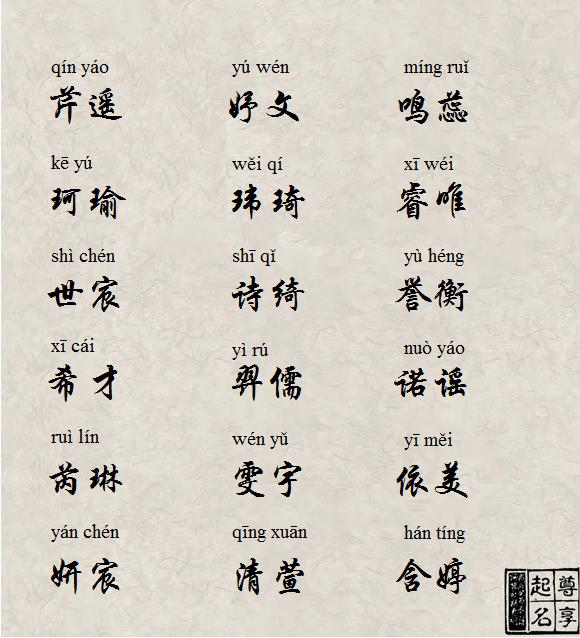 qín yáo yú wén míng ruǐ
芹遥 妤文 鸣蕊
kē yú wěi qí xī wéi
珂瑜 玮琦 睿唯
shì chén shī qǐ yù héng
世宸 诗绮 誉衡
xī cái yì rú nuò yáo
希才 羿儒 诺谣
ruì lín wén yǔ yī měi
芮琳 雯宇 依美
yán chén qīng xuān hán tíng
妍宸 清萱 含婷
尊享
起名